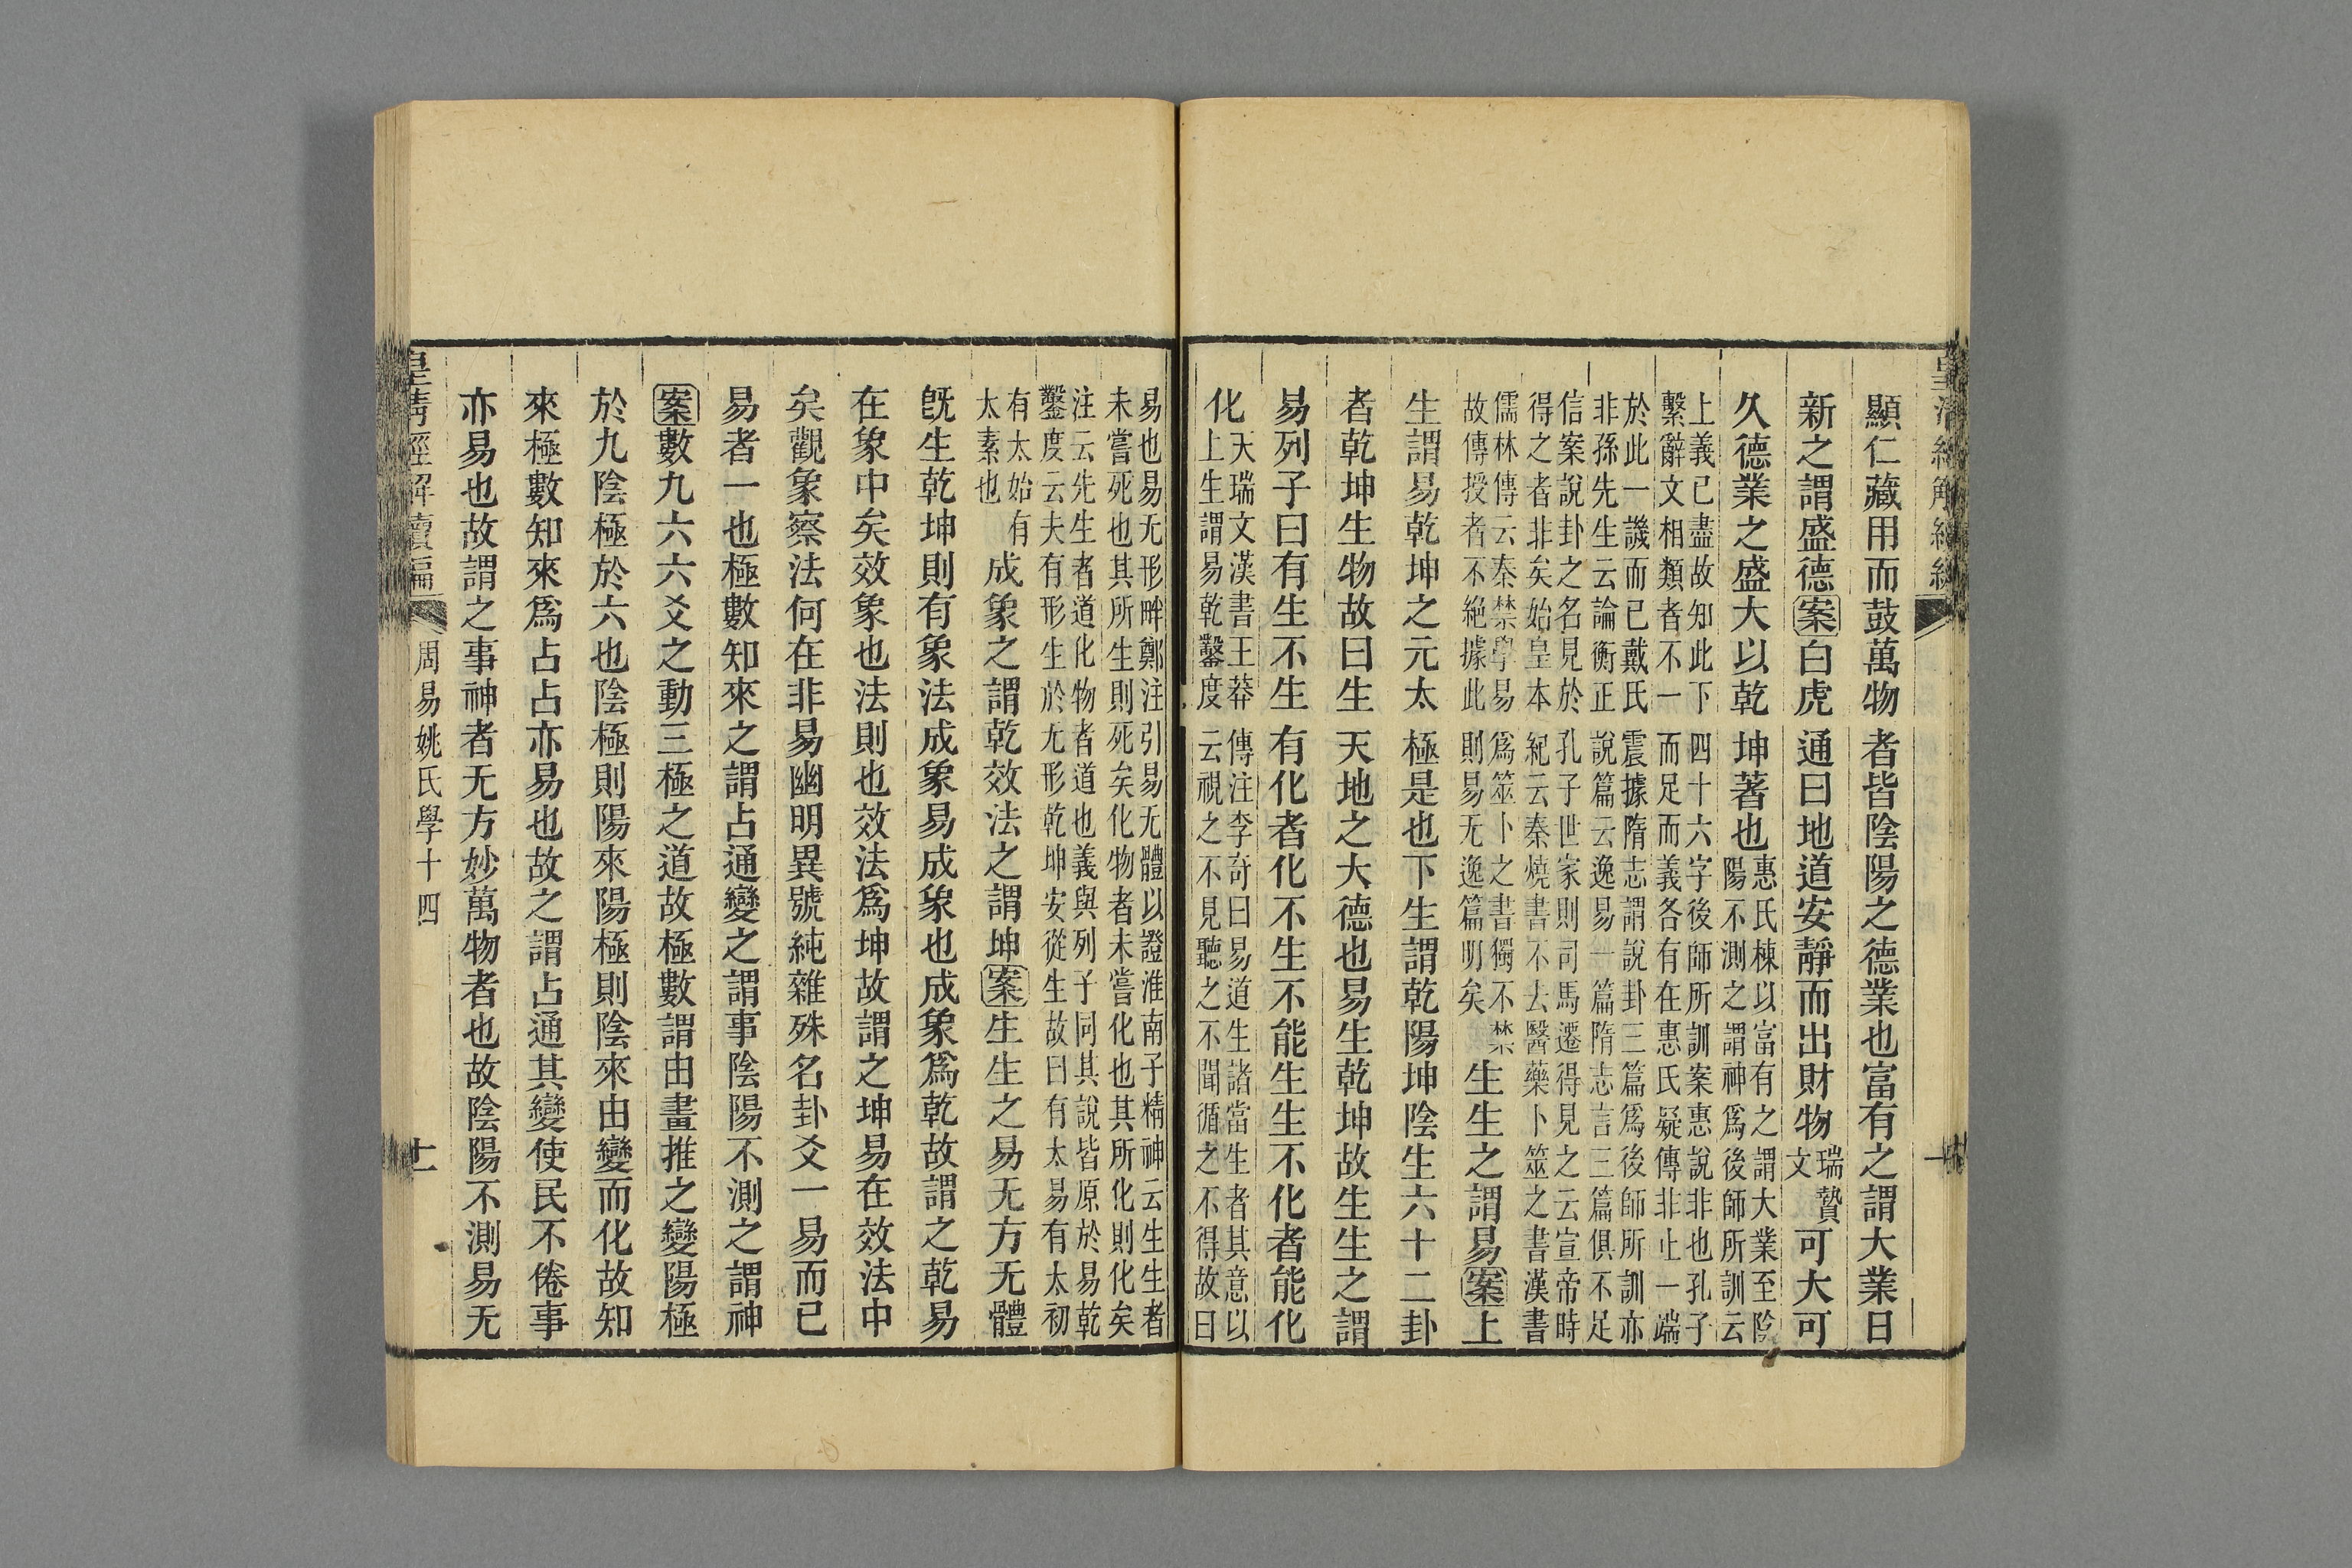 顯仁藏用而鼓萬物者皆陰陽之德業也富有之謂大業日
新之謂盛德案白虎通曰地道安靜而出財物瑞贄
文可大可
久德業之盛大以乾坤著也惠氏棟以富有之謂大業至陰
陽不測之謂神爲後師所訓云
上義已盡故知此下四十六字後師所訓案惠說非也孔子
繫辭文相類者不一而足而義各有在惠氏疑傳非止一端
於此一譏而已戴氏震據隋志謂說卦三篇爲後師所訓亦
非孫先生云論衡正說篇云逸易一篇隋志言三篇俱不足
信案說卦之名見於孔子世家則司馬遷得見之云宣帝時
得之者非矣始皇本紀云秦燒書不去醫藥卜筮之書漢書
儒林傳云秦禁學易爲筮卜之書獨不禁
故傳授者不絕據此則易无逸篇明矣生生之謂易案上
生謂易乾坤之元太極是也下生謂乾陽坤陰生六十二卦
者乾坤生物故曰生天地之大德也易生乾坤故生生之謂
易列子曰有生不生有化者化不生不能生生不化者能化
化天瑞文漢書王莽傳注李奇曰易道生諸當生者其意以
上生謂易乾鑿度云視之不見聽之不聞循之不得故曰
易也易无形畔鄭注引易无體以證淮南子精神云生生者
未嘗死也其所生則死矣化物者未嘗化也其所化則化矣
注云先生者道化物者道也義與列子同其說皆原於易乾
鑿度云夫有形生於无形乾坤安從生故曰有太易有太初
有太始有
太素也成象之謂乾效法之謂坤案生生之易无方无體
旣生乾坤則有象法成象易成象也成象爲乾故謂之乾易
在象中矣效象也法則也效法爲坤故謂之坤易在效法中
矣觀象察法何在非易幽明異號純雜殊名卦爻一易而已
易者一也極數知來之謂占通變之謂事陰陽不測之謂神
案數九六六爻之動三極之道故極數謂由畫推之變陽極
於九陰極於六也陰極則陽來陽極則陰來由變而化故知
來極數知來爲占占亦易也故之謂占通其變使民不倦事
亦易也故謂之事神者无方妙萬物者也故陰陽不測易无
皇清經解續編
周易姚氏學十四
十一